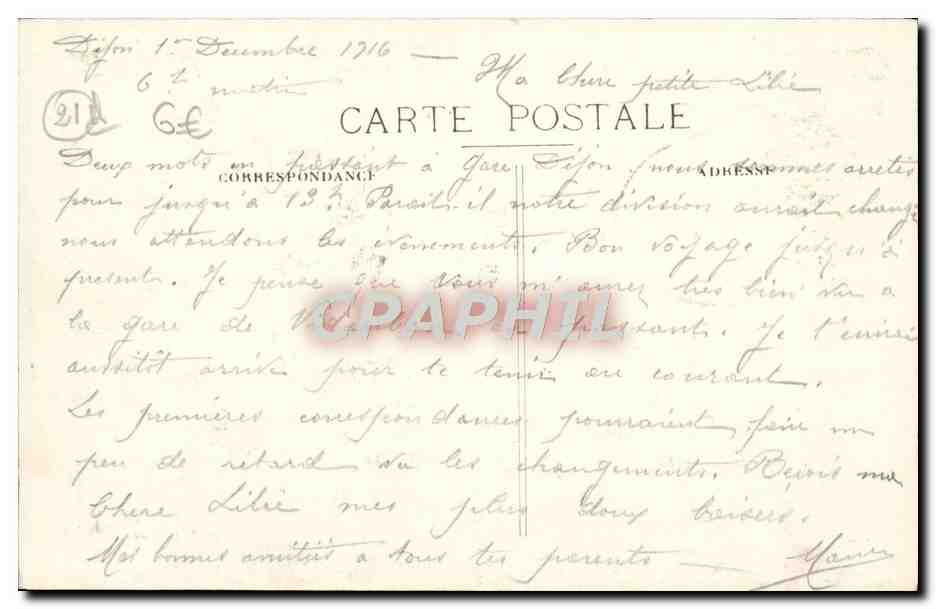 Dijon 1er Decembre 1916 —
6h matin
Ma Chere petite Lilie
21
6€
CARTE POSTALE
CORRESPONDANCE
ADRESSE
Deux mots en passant à gare Dijon nous sommes arretés
pour jusqu'à 13h. Parait-il notre division aurait changé
nous attendons les évenements. Bon voyage jusqu'à
present. Je pense que vous m'aurez tres bien vu a
la gare de en passant. Je t'ecrirai
aussitôt arrivé pour te tenir au courant.
Les premières correspondances pourraient faire un
peu de retard vu les changements. Reçois ma
Chere Lilie mes plus doux baisers.
Mes bonnes amitiés a tous tes parents —
CPAPHIL